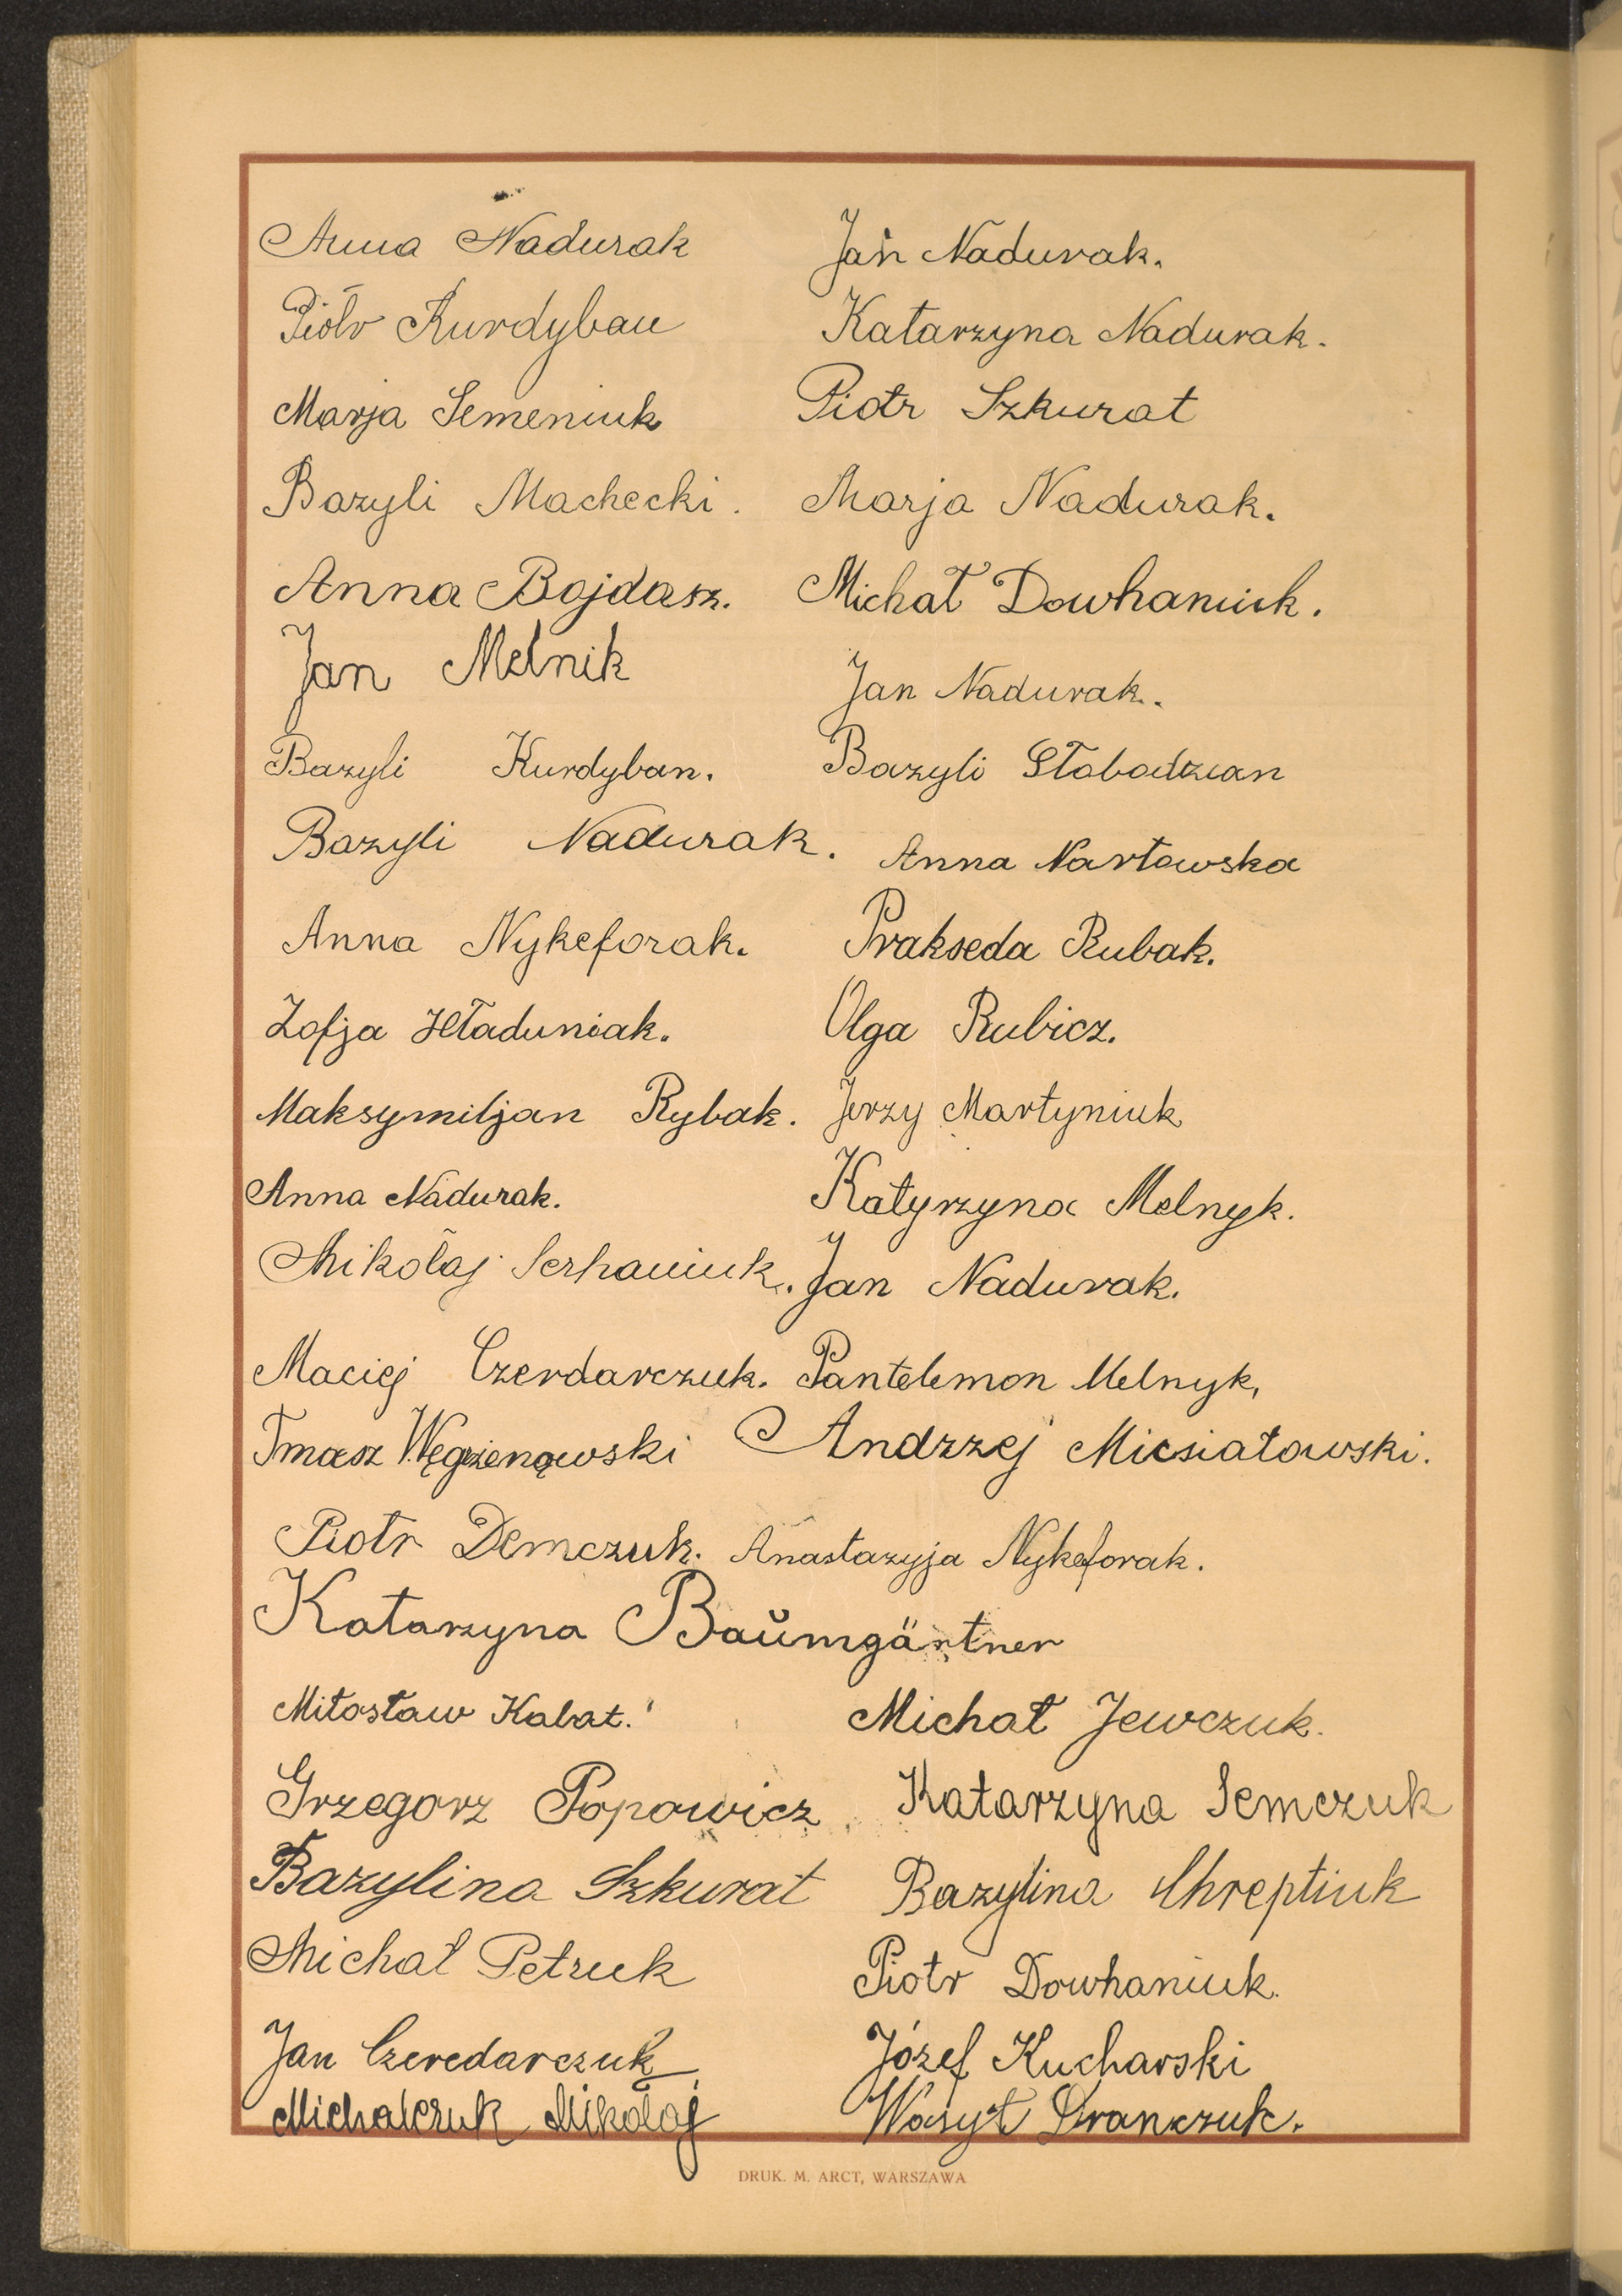 Anna Nadurak Jan Nadurak.
Piotr Kurdyban Katarzyna Nadurak.
Marja Semeniuk Piotr Szkurat
Bazyli Machecki. Marja Nadurak.
Anna Bojdasz. Michał Dowhaniuk.
Jan Melnik Jan Nadurak.
Bazyli Kurdyban. Bazyli Słabodzian
Bazyli Nadurak. Anna Nartowska
Anna Nykeforak. Prakseda Rubak.
Zofja Hładuniak. Olga Rubicz.
Maksymiljan Rybak. Jerzy Martyniuk
Anna Nadurak. Katyrzyna Melnyk.
Mikołaj Serhaniuk. Jan Nadurak.
Maciej Czerdarczuk. Pantelemon Melnyk,
Tmasz Andrzej Micsiatowski.
Piotr Demczuk. Anastazyja Nykeforak.
Katarzyna Baŭmgärtner
Miłosław Kabat. Michał Jewczuk.
Grzegorz Popowicz Katarzyna Semczuk
Bazylina Szkurat Bazylina Chreptiuk
Michał Petruk Piotr Dowhaniuk.
Jan Czeredarczuk Józef Kucharski
Michalczuk Mikołaj Wasył
DRUK. M. ARCT, WARSZAWA